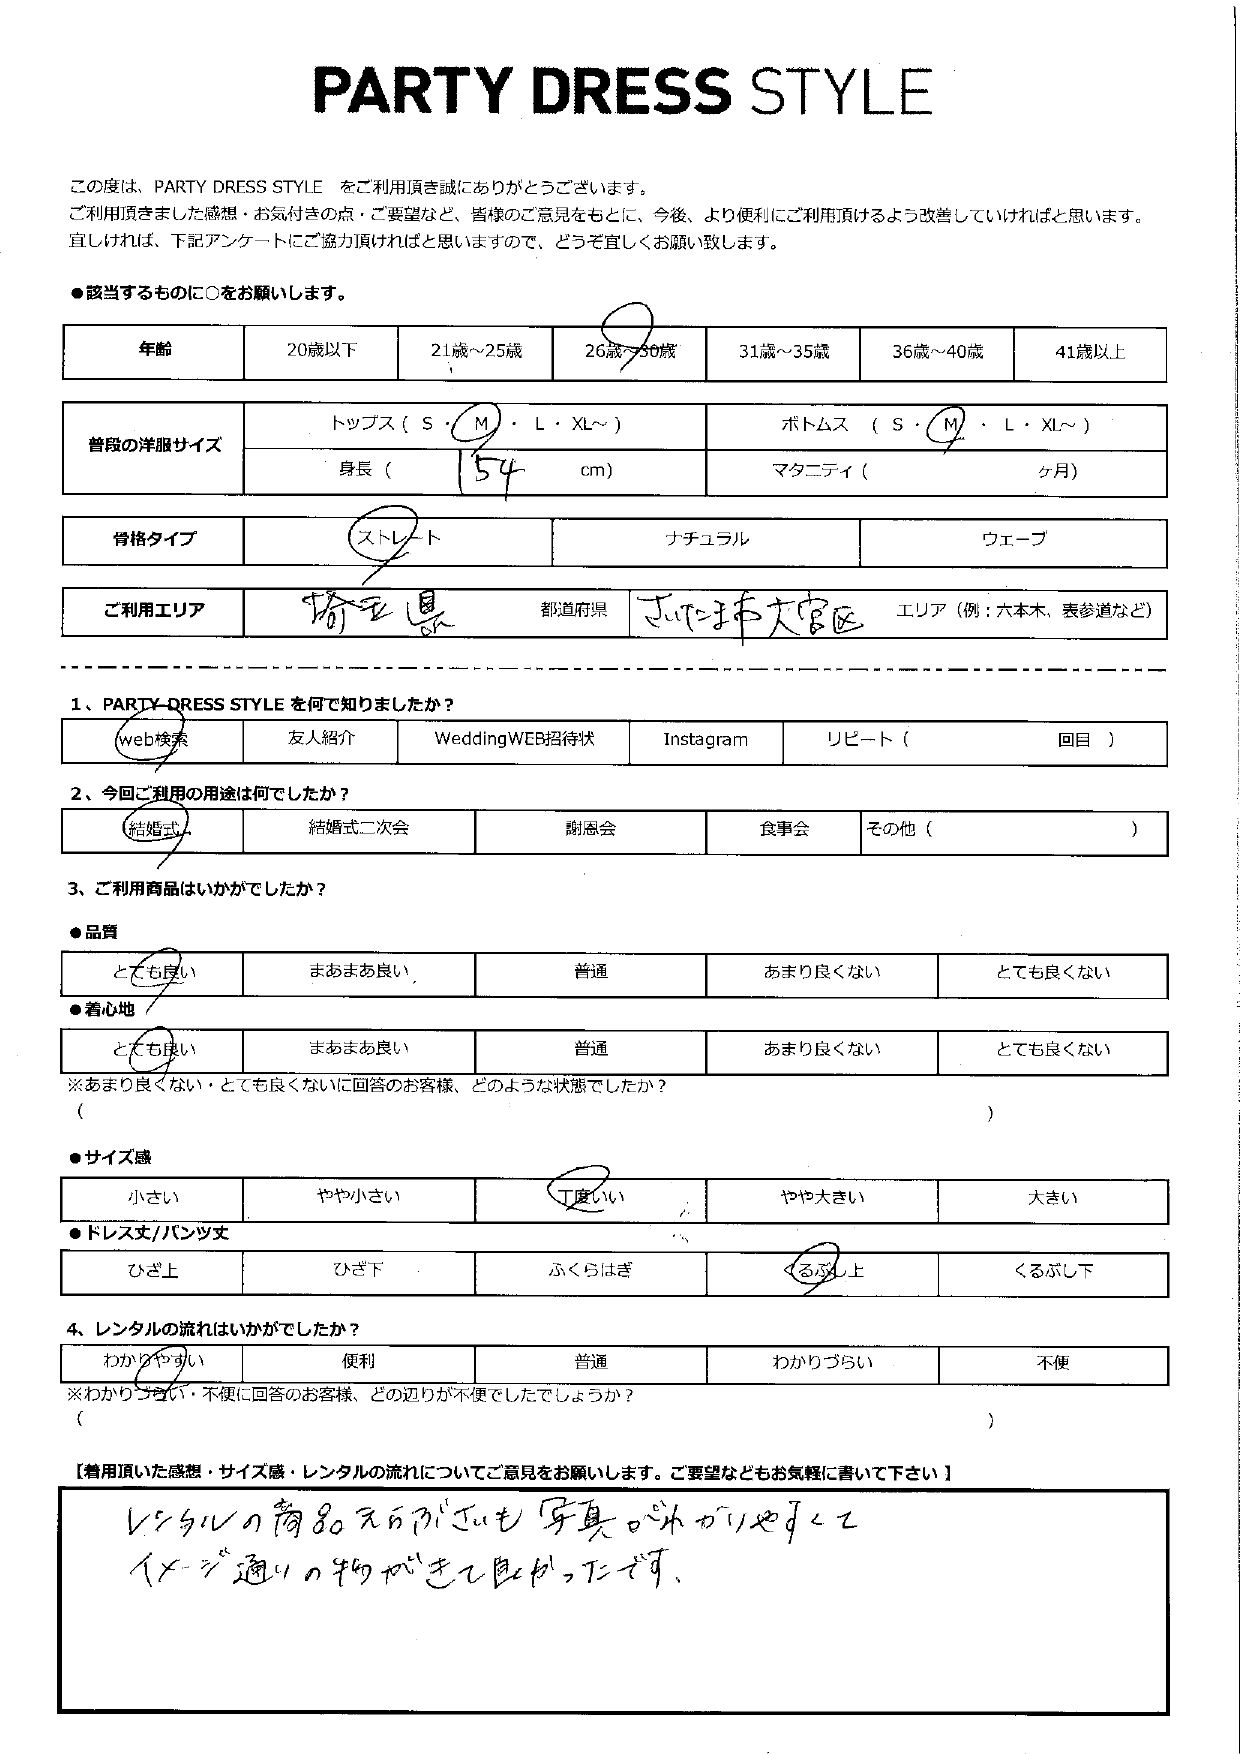 PARTY DRESS STYLE
この度は、PARTY DRESS STYLE　をご利用頂き誠にありがとうございます。
ご利用頂きました感想・お気付きの点・ご要望など、皆様のご意見をもとに、今後、より便利にご利用頂けるよう改善していければと思います。
宜しければ、下記アンケートにご協力頂ければと思いますので、どうぞ宜しくお願い致します。
●該当するものに○をお願いします。
年齢 20歳以下 21歳～25歳 26歳～30歳 31歳～35歳 36歳～40歳 41歳以上
普段の洋服サイズ トップス ( S ・ M ・ L ・ XL～ ) ボトムス ( S ・ M ・ L ・ XL～ )
身長 ( 154 cm) マタニティ ( ヶ月)
骨格タイプ ストレート ナチュラル ウェーブ
ご利用エリア 埼玉県 都道府県 さいたま市大宮区 エリア（例：六本木、表参道など）
1、PARTY DRESS STYLE を何で知りましたか？
web検索 友人紹介 WeddingWEB招待状 Instagram リピート ( 回目 )
2、今回ご利用の用途は何でしたか？
結婚式 結婚式二次会 謝恩会 食事会 その他 ( )
3、ご利用商品はいかがでしたか？
●品質
とても良い まあまあ良い 普通 あまり良くない とても良くない
●着心地
とても良い まあまあ良い 普通 あまり良くない とても良くない
※あまり良くない・とても良くないに回答のお客様、どのような状態でしたか？
( )
●サイズ感
小さい やや小さい 丁度いい やや大きい 大きい
●ドレス丈/パンツ丈
ひざ上 ひざ下 ふくらはぎ くるぶし上 くるぶし下
4、レンタルの流れはいかがでしたか？
わかりやすい 便利 普通 わかりづらい 不便
※わかりづらい・不便に回答のお客様、どの辺りが不便でしたでしょうか？
( )
【着用頂いた感想・サイズ感・レンタルの流れについてご意見をお願いします。ご要望などもお気軽に書いて下さい】
レンタルの商品えらぶさいも写真がわかりやすくて
イメージ通りの物がきて良かったです、